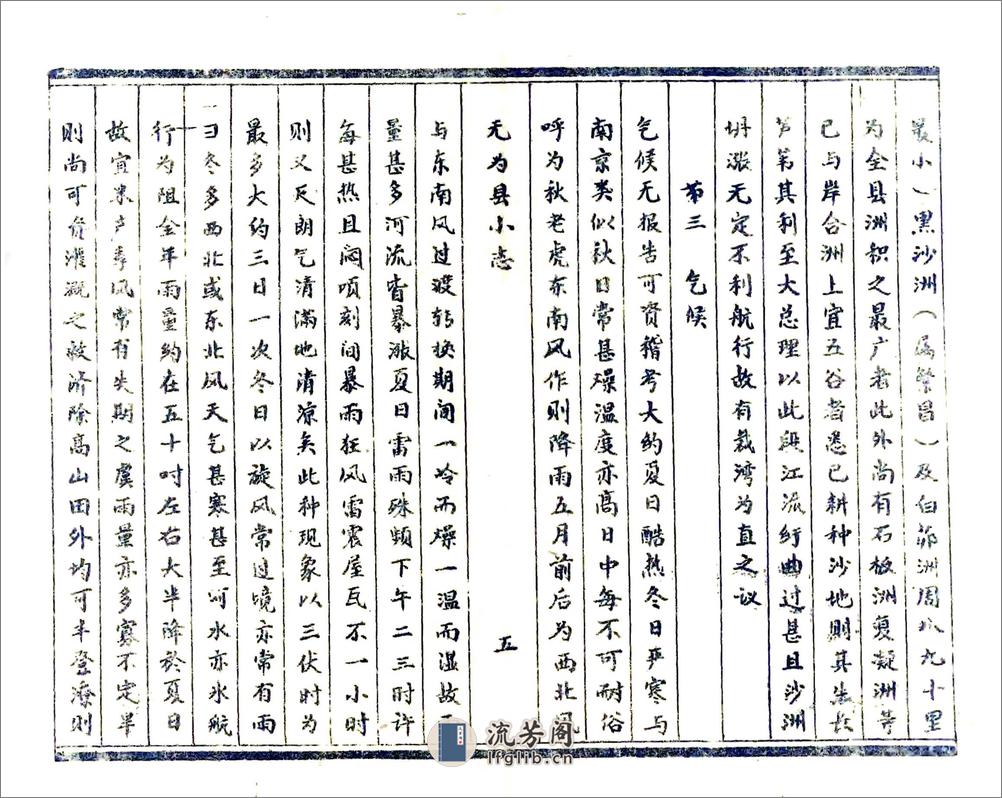 最小）黑沙洲（属繁昌）及白茆洲周八九十里
为全县洲积之最广者此外尚有石板洲复凝洲等
已与岸合洲上宜五谷者悉已耕种沙地则其生长
芦苇其利至大总理以此段江流纡曲过甚且沙洲
坍涨无定不利航行故有裁湾为直之议
第三　气候
气候无报告可资稽考大约夏日酷热冬日严寒与
南京类似秋日常甚燥温度亦高日中每不可耐俗
呼为秋老虎东南风作则降雨五月前后为西北风
无为县小志　五
与东南风过渡转换期间一冷而燥一温而湿故
量甚多河流皆暴涨夏日雷雨殊频下午二三时许
每甚热且闷顷刻间暴雨狂风雷震屋瓦不一小时
则又天朗气清满地清凉矣此种现象以三伏时为
最多大约三日一次冬日以旋风常过境亦常有雨
冬多西北或东北风天气甚寒甚至河水亦冰航
行为阻全年雨量约在五十吋左右大半降於夏日
故宜米产季风常有失期之虞雨量亦多寡不定旱
则尚可资灌溉之救济除高山田外均可丰登潦则
流芳阁
lfglib.cn